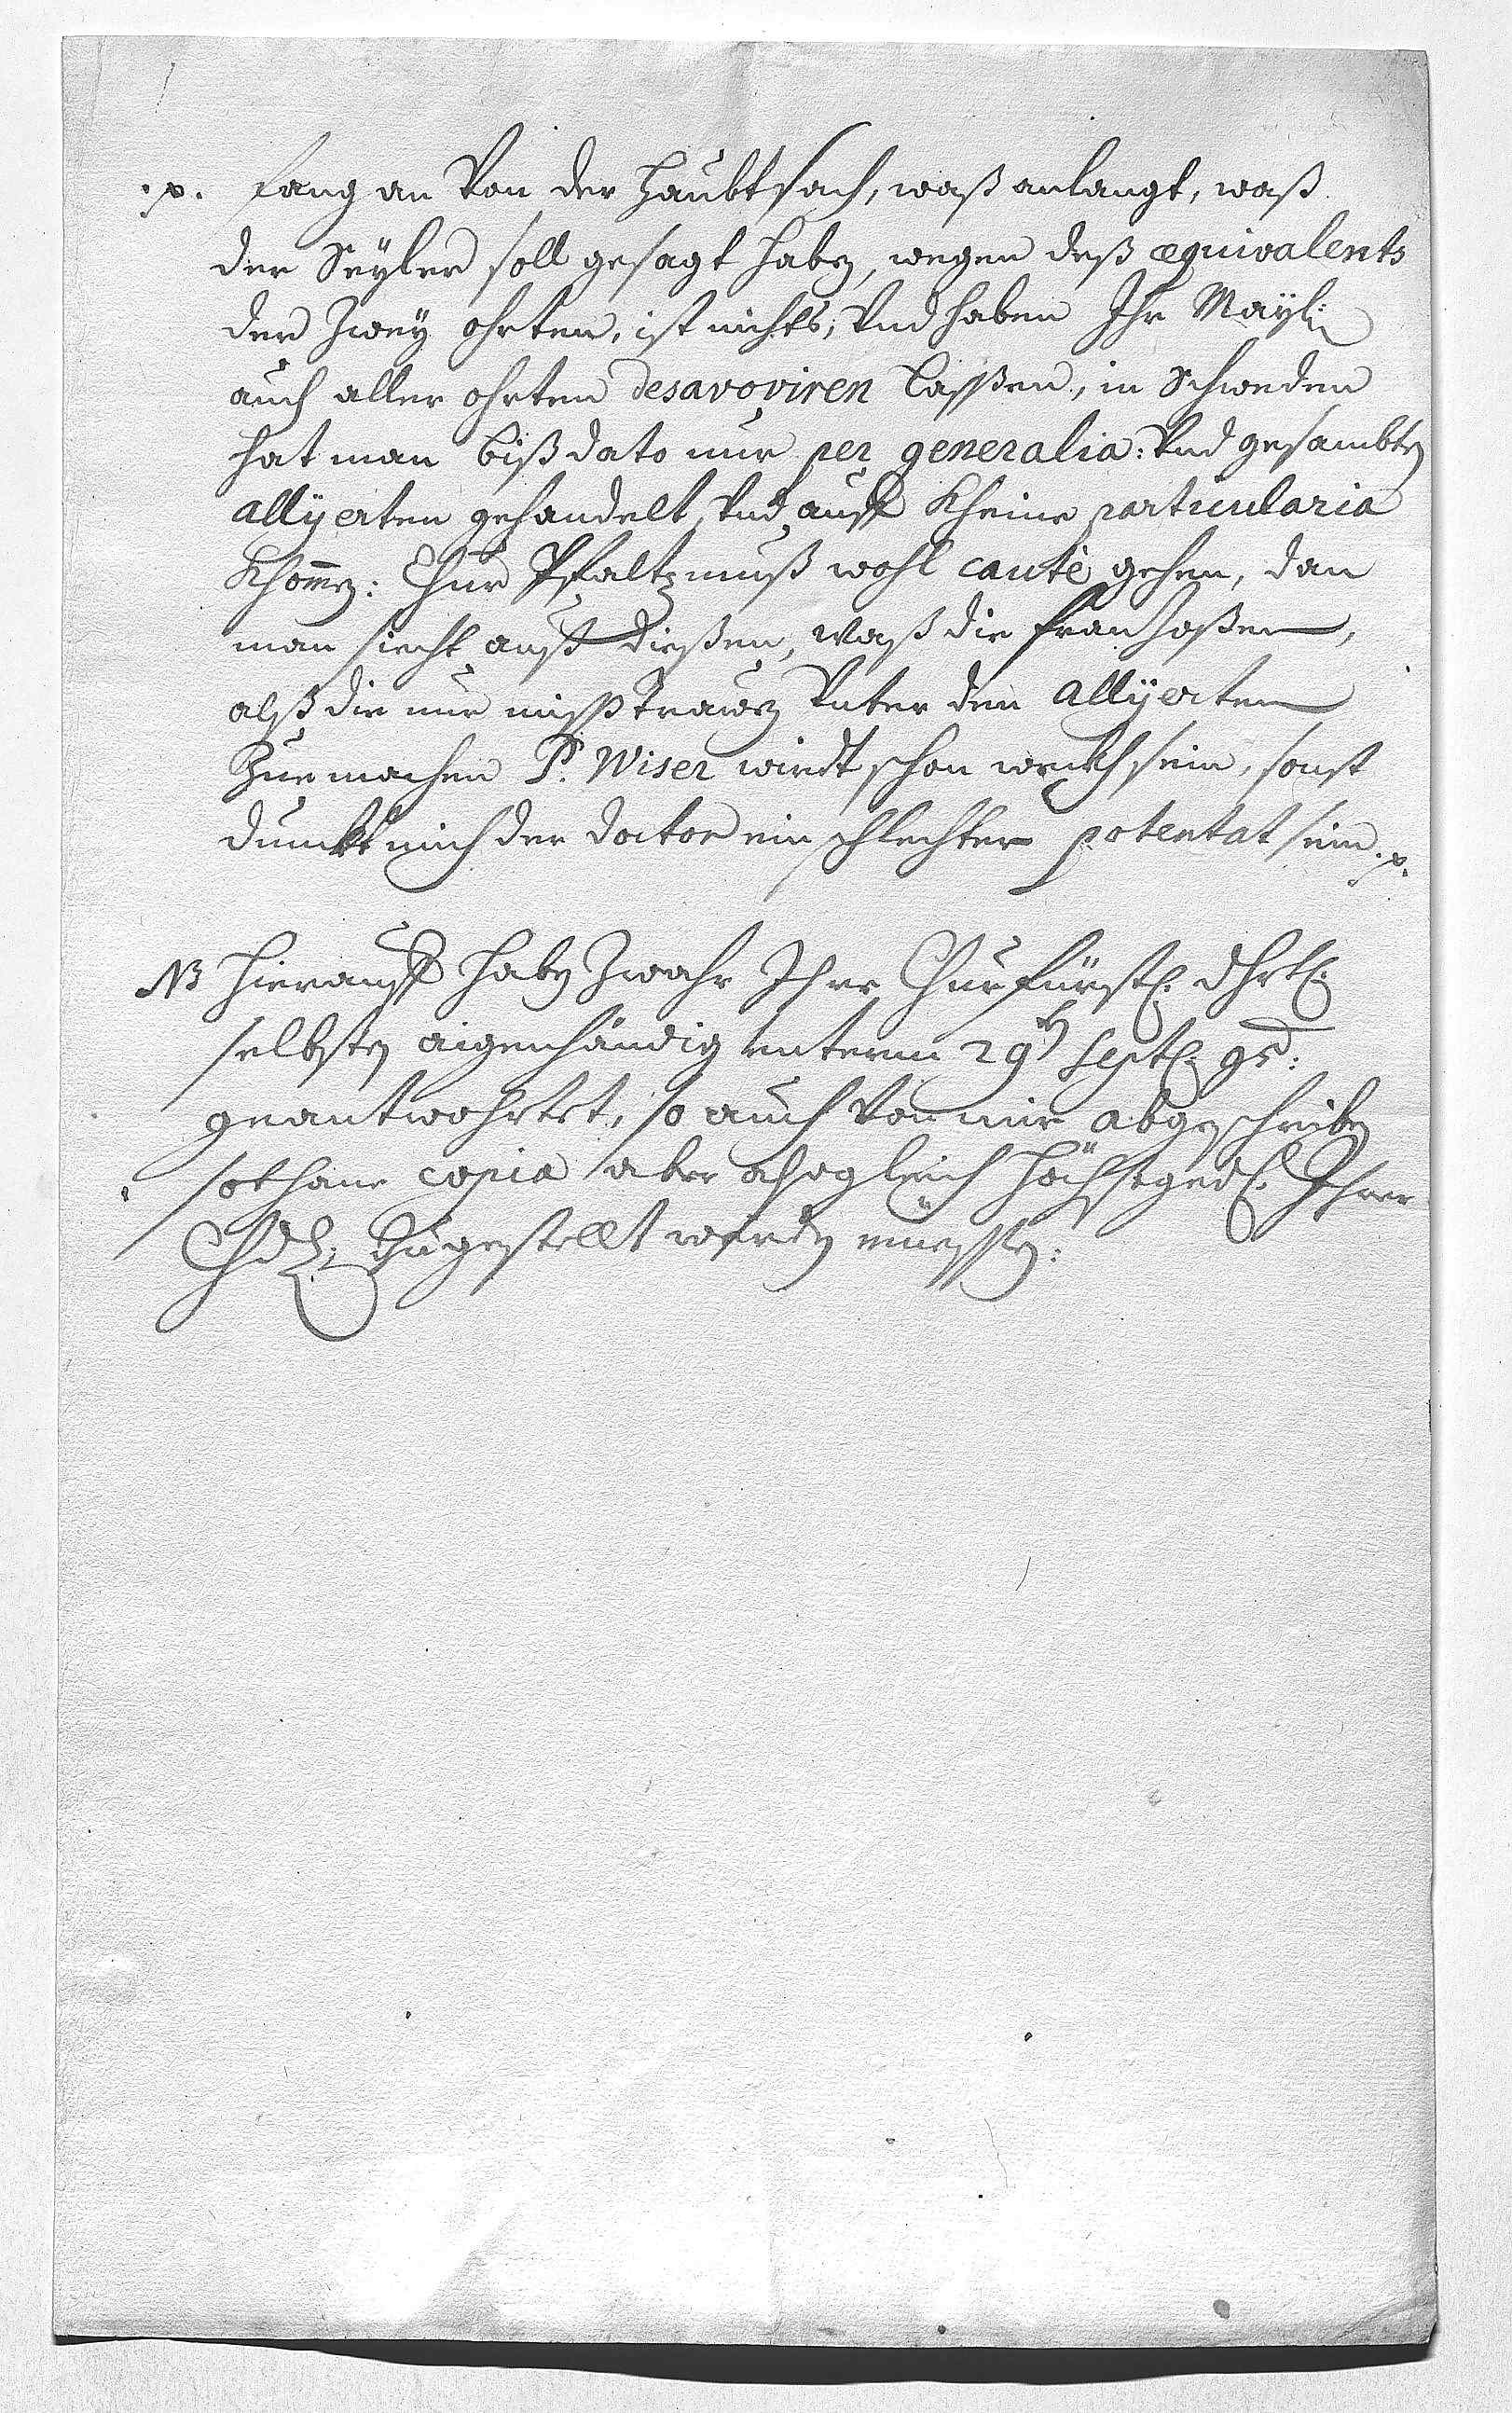 .p. fang an Von der Haubtsach, waß anlangt, waß
der Seyler soll gesagt haben, wegen deß æquivalents
der Zwey ohrten, ist nichts, Vnd haben Ihr Mayl:
auch aller ohrten desavoviren lassen, in Schweden
hat man biß dato nur per generalia: Vnd gesambten
allyerten gehandelt, Vnd auff Kheine particularia
Khom̅en: Chur Pfaltz muß wohl cautè gehen, dan
man siecht auß dießen, Waß die franzoßen,
alß die nur mißtrawen Vnter den allyerten
Zue machen P. Wiser wirdt schon weckh sein, sonst
dunckt mich der doctor ein schlechter potentat sein .p.
NB Hierauff haben Zwahr Ihre Churfürstl: dhrtl:
selbsten aigenhändig unterm 29ten Septl: 95:
geantwohrtet, so auch Von mir abgeschriben
sothane copia aber alsogleich höchstgedl: Ihrer
Chdl: Zugestellt werden müessen: